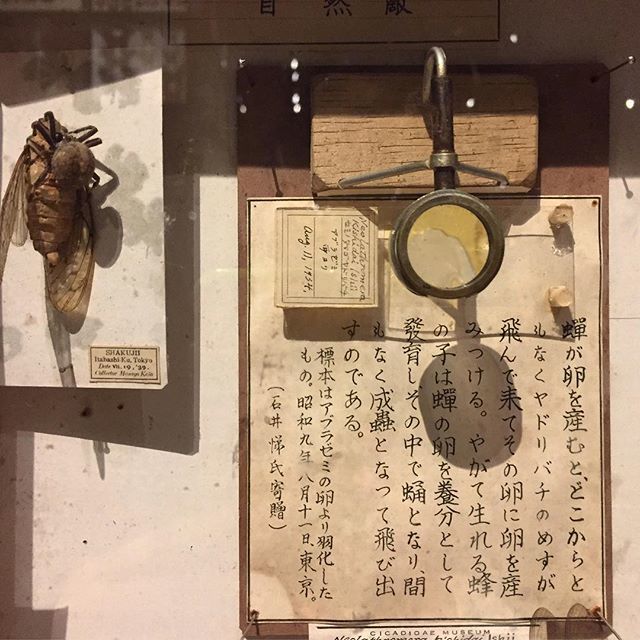 自然敵
SHAKUJII
Itabashi-Ku, Tokyo
Date VII. 19, '39.
Collector Masayo Kato
Kishidai Ishii
Aug 11, 1934.
蟬が卵を産むと、どこからと
もなくヤドリバチのめすが
飛んで来てその卵に卵を産
みつける。やがて生れる蜂
の子は蟬の卵を養分として
發育し、その中で蛹となり、間
もなく成蟲となつて飛び出
すのである。
標本はアブラゼミの卵より羽化した
もの。昭和九年八月十一日、東京。
(石井悌氏寄贈)
CICADIDAE MUSEUM
Ishii